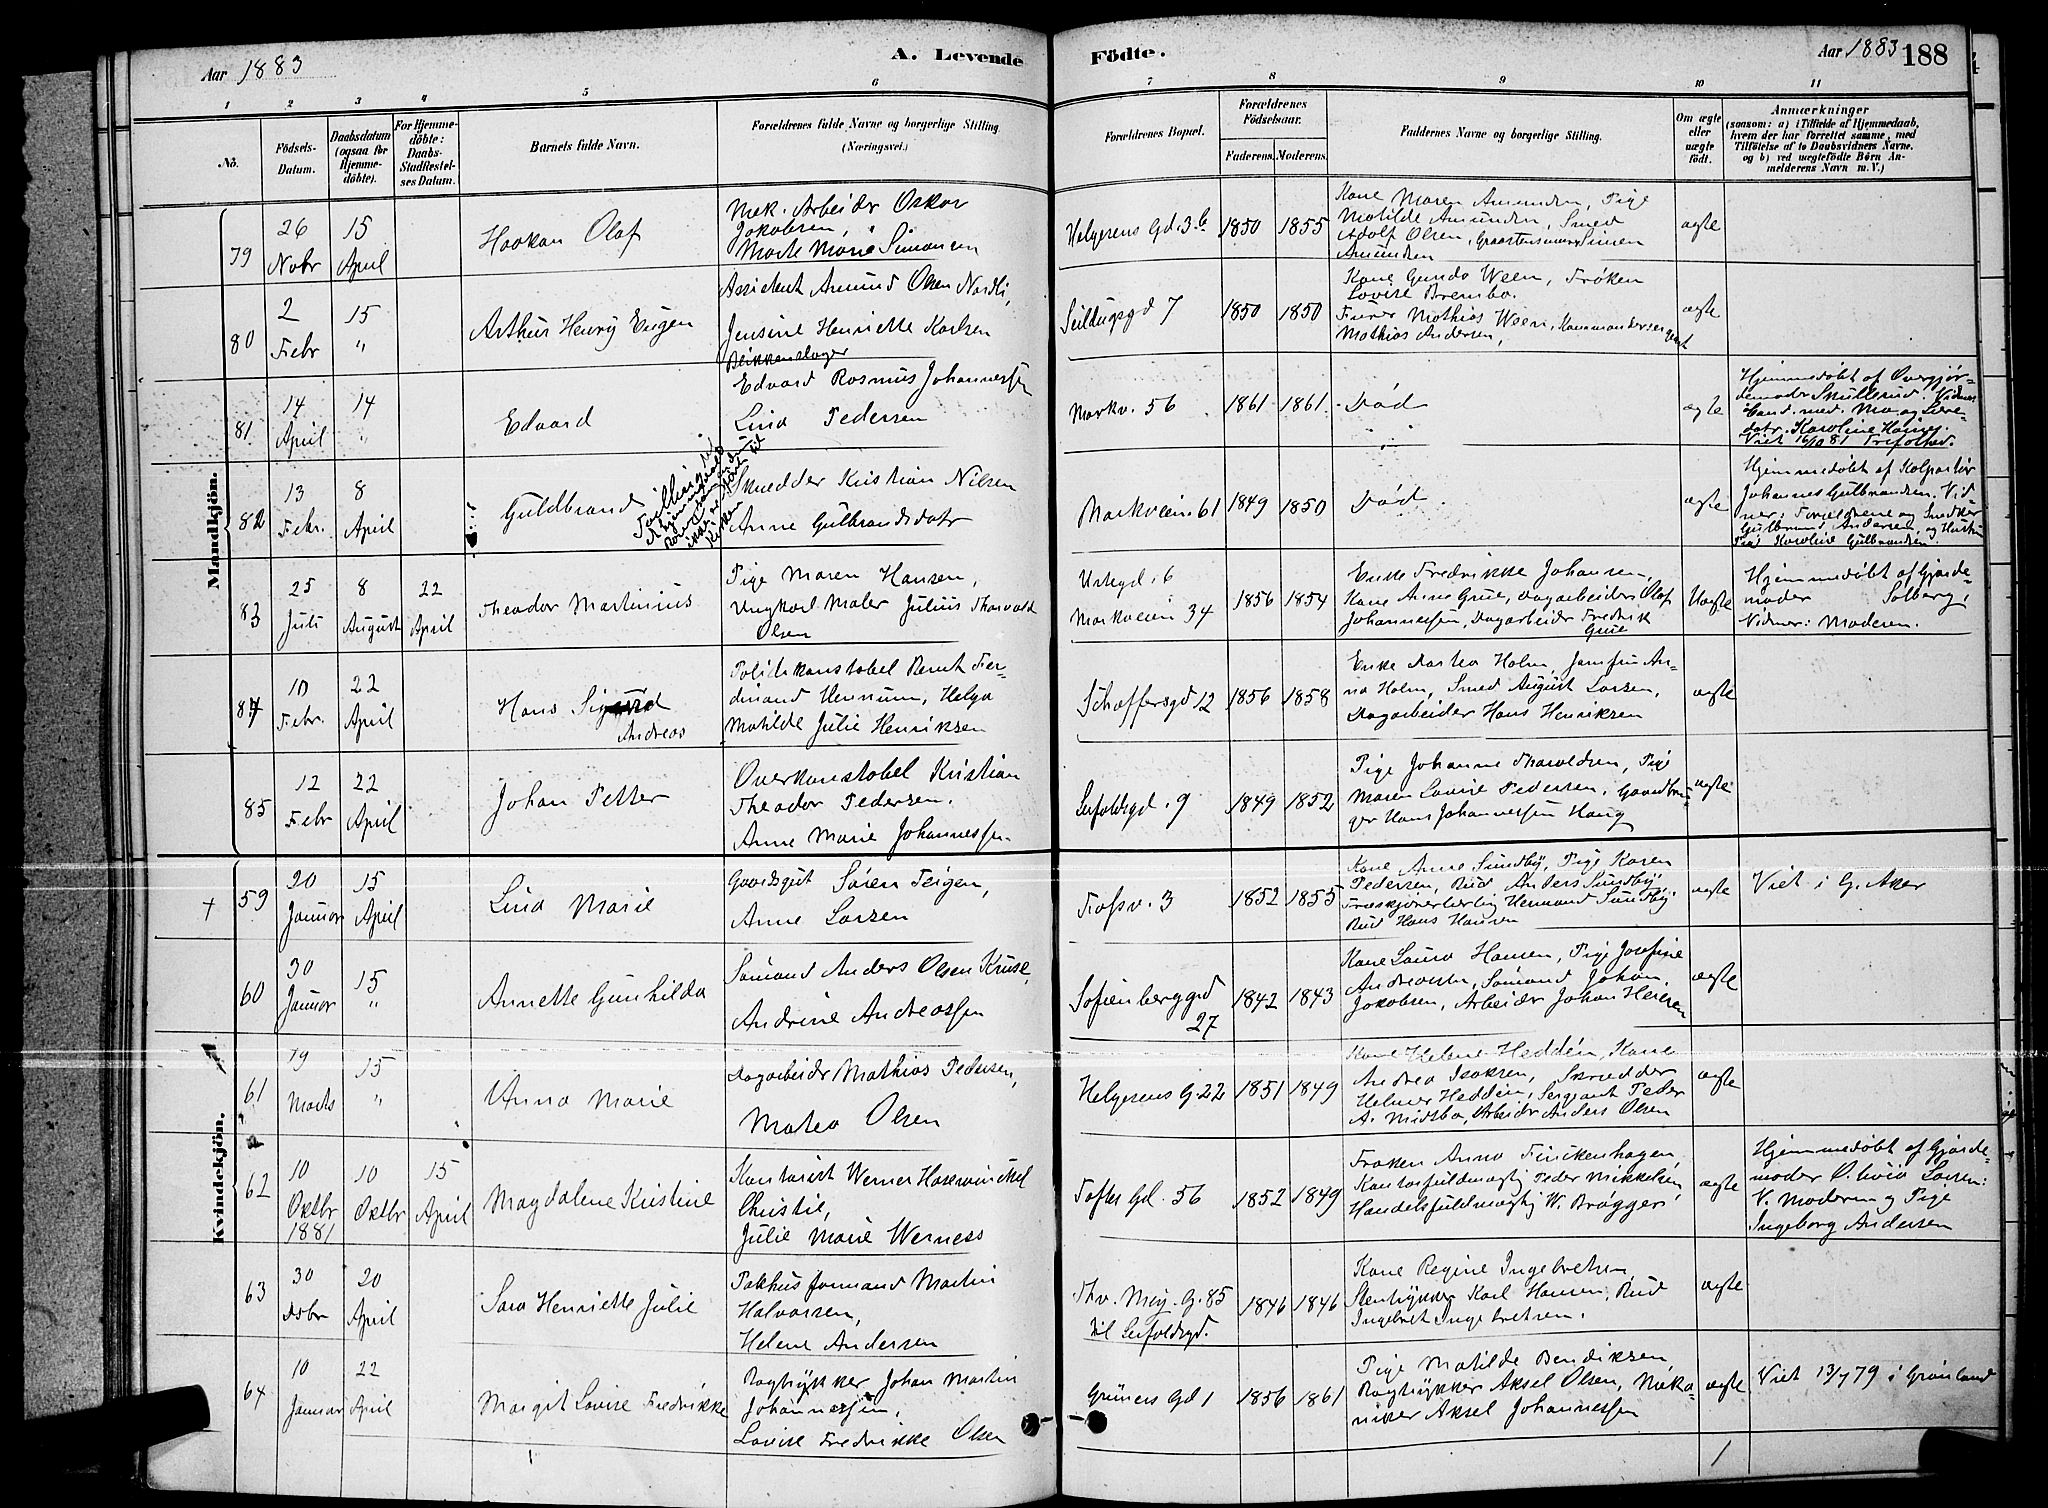 Aar 1883
A. Levende Födte.
Aar 1883 188
1 2 3 4 5 6 7 8 9 10 11
No.
Födsels-
Datum.
Daabsdatum
(ogsaa for
Hjemme-
döbte).
For Hjemme-
döbte:
Daabs-
Stadfæstel-
ses Datum.
Barnets fulde Navn.
Forældrenes fulde Navne og borgerlige Stilling.
(Næringsvei.)
Forældrenes Bopæl.
Forældrenes
Födselsaar.
Faderens. Moderens.
Faddernes Navne og borgerlige Stilling.
Om ægte
eller
uægte
födt.
Anmærkninger
(saasom: a) i Tilfælde af Hjemmedaab,
hvem der har forrettet samme, med
Tilföielse af to Daabsvidners Navne.
og b) ved uægtefödte Börn An-
melderens Navn m. V.)
Mandkjön.
79
26 Nobr
15 April
Haakon Olaf
Mek. Arbeider Oskar
Jakobsen,
Marte Marie Simonsen
Helgesens Gd. 3 b
1850 1855
Kone Maren Amundsen, Pige
Matilde Amundsen, Smed
Adolf Olsen, Simen
Amundsen
ægte
80
2 Febr
15 "
Arthur Henry Eugen
Assistent Amund Olsen Nordli,
Jensine Henriette Karlsen
Seildugsgd 7
1850 1850
Kone Gunda Ween, Frøken
Lovise Brembo.
Furer Mathias Ween, Kommandersergent
Mathias Andersen,
ægte
81
14 April
14 "
Edvard
Blikkenslager
Edvard Rasmus Johannessen
Lina Pedersen
Markv. 56
1861 1861
Død
ægte
Hjemmedøbt af Overgjor-
demoder Skullerud. Vidner
Karoline
Viet 16/10 81 Trefoldhed.
82
13 Febr.
8 April
Guldbrand
Skrædder Kristian Nilsen
Anne Gulbrandsdatr
Markveien 61
1849 1850
Død
ægte
Hjemmedøbt af Kolportør
Johannes Gulbrandsen. Vid
ner: Forældrene og Snedker
Gulbrand Andersen og
Pige Karoline Gulbrandsen
83
25 Juli
8 August
22 April
Theodor Martinius
Pige Maren Hansen,
Ungkarl Maler Julius Thorvald
Olsen
Urtegd. 6
Markveien 34
1856 1854
Enke Fredrikke Johansen,
Kone Anne Grue, Dagarbeider Olaf
Johannessen, Dagarbeider Fredrik
Grue
Uægte
Hjemmedøbt af Gjorde-
moder Solberg,
Vidner: Moderen.
84
10 Febr.
22 April
Hans Sigurd
Andreas
Politikonstabel Bernt Fer-
dinand Hennum, Helga
Matilde Julie Henriksen
Schaffersgd 12
1856 1858
Enke Dortea Holm, Jomfru An-
na Holm, Smed August Larsen,
Dagarbeider Hans Henriksen
ægte
85
12 Febr
22 April
Johan Petter
Overkonstabel Kristian
Theodor Pedersen,
Anne Marie Johannessen
Leifoldsgd. 9
1849 1852
Pige Johanne Thoroldsen, Pige
Maren Lovise Pedersen, Gaardbru-
ger Hans Johannessen Haug
ægte
Kvindekjön.
+
59
20 Januar
15 April
Lina Marie
Gaardsgut Søren Teigen,
Anne Larsen
Fossv. 3
1852 1855
Kone Anne Sundby, Pige Karen
Pedersen, Bud Anders Sundby,
Herman Sundby,
Bud Hans Hansen
ægte
Viet i G. Aker
60
30 Januar
15 "
Annette Gunhilda
Sømand Anders Olsen Kruse,
Andrine Andreassen
Sofienberggd
27
1842 1843
Kone Laura Hansen, Pige Josefine
Andreassen, Sømand Johan
Jakobsen, Arbeider Johan
ægte
61
19 Marts
15 "
Anna Marie
Dagarbeider Mathias Pedersen,
Matea Olsen
Helgesens G. 22
1851 1849
Kone Helene Heddén, Kone
Andrea Isaksen, Skrædder
Helmer Heddén, Sergeant Peder
A. Midtbø, Arbeider Anders Olsen
ægte
62
10 Oktbr 1881
10 Oktbr
15 April
Magdalene Kristine
Kontorist Werner Hasewinckel
Christie,
Julie Marie Werness
Toftes Gd. 56
1852 1849
Frøken Anna Finckenhagen,
Kontorfuldmægtig Peder Mikkelsen,
Handelsfuldmægtig W. Brøgger
ægte
Hjemmedøbt af Gjorde-
moder Olivia Larsen:
V. Moderen og Pige
Ingeborg Andersen
63
30 Dsbr
20 April
Sara Henriette Julie
Pakhusformand Martin
Halvorsen,
Helene Andersen
Thv. Mey. G. 85
til Leifoldsgd.
1846 1846
Kone Regine Ingebretsen
Stentrykker Karl Hansen, Bud
Ingebret Ingebretsen.
ægte
64
10 Januar
22 April
Margit Lovise Fredrikke
Bogtrykker Johan Martin
Johannessen,
Lovise Fredrikke Olsen
Grüners Gd 1
1856 1861
Pige Matilde Bendiksen,
Bogtrykker Aksel Olsen, Meka-
niker Aksel Johannessen
ægte
Viet 13/7 79 i Grønland